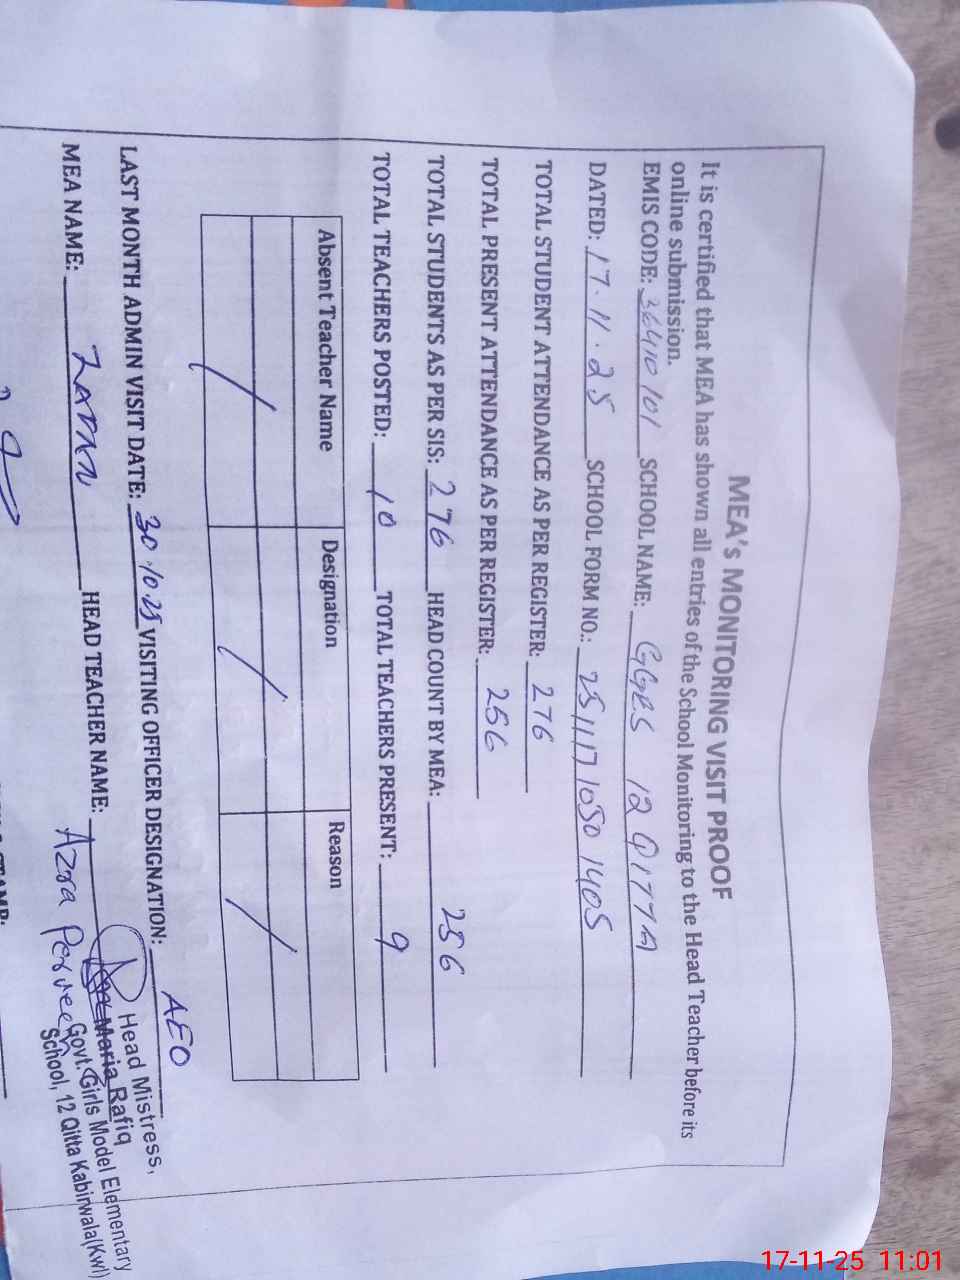 MEA's MONITORING VISIT PROOF
It is certified that MEA has shown all entries of the School Monitoring to the Head Teacher before its
online submission.
EMIS CODE: 36410101 SCHOOL NAME: GGES 12 QITTA
DATED: 17.11.25 SCHOOL FORM NO.: 25111710501405
TOTAL STUDENT ATTENDANCE AS PER REGISTER: 276
TOTAL PRESENT ATTENDANCE AS PER REGISTER: 256
TOTAL STUDENTS AS PER SIS: 276 HEAD COUNT BY MEA: 256
TOTAL TEACHERS POSTED: 10 TOTAL TEACHERS PRESENT: 9
Absent Teacher Name Designation Reason
LAST MONTH ADMIN VISIT DATE: 30.10.25 VISITING OFFICER DESIGNATION: AEO
MEA NAME: HEAD TEACHER NAME: Azra Perveen
Head Mistress,
Maria Rafiq
Govt. Girls Model Elementary
School, 12 Qitta Kabirwala(Kwl)
17-11-25 11:01